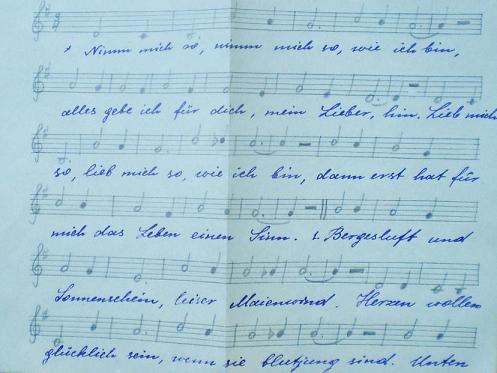 * Nimm mich so, nimm mich so, wie ich bin,
alles gebe ich für dich, mein Lieber, hin. Lieb mich
so, lieb mich so, wie ich bin, dann erst hat für
mich das Leben einen Sinn. 1. Bergesluft und
Sonnenschein, leiser Maienwind. Herzen wollen
glücklich sein, wenn sie blutjung sind. Unten